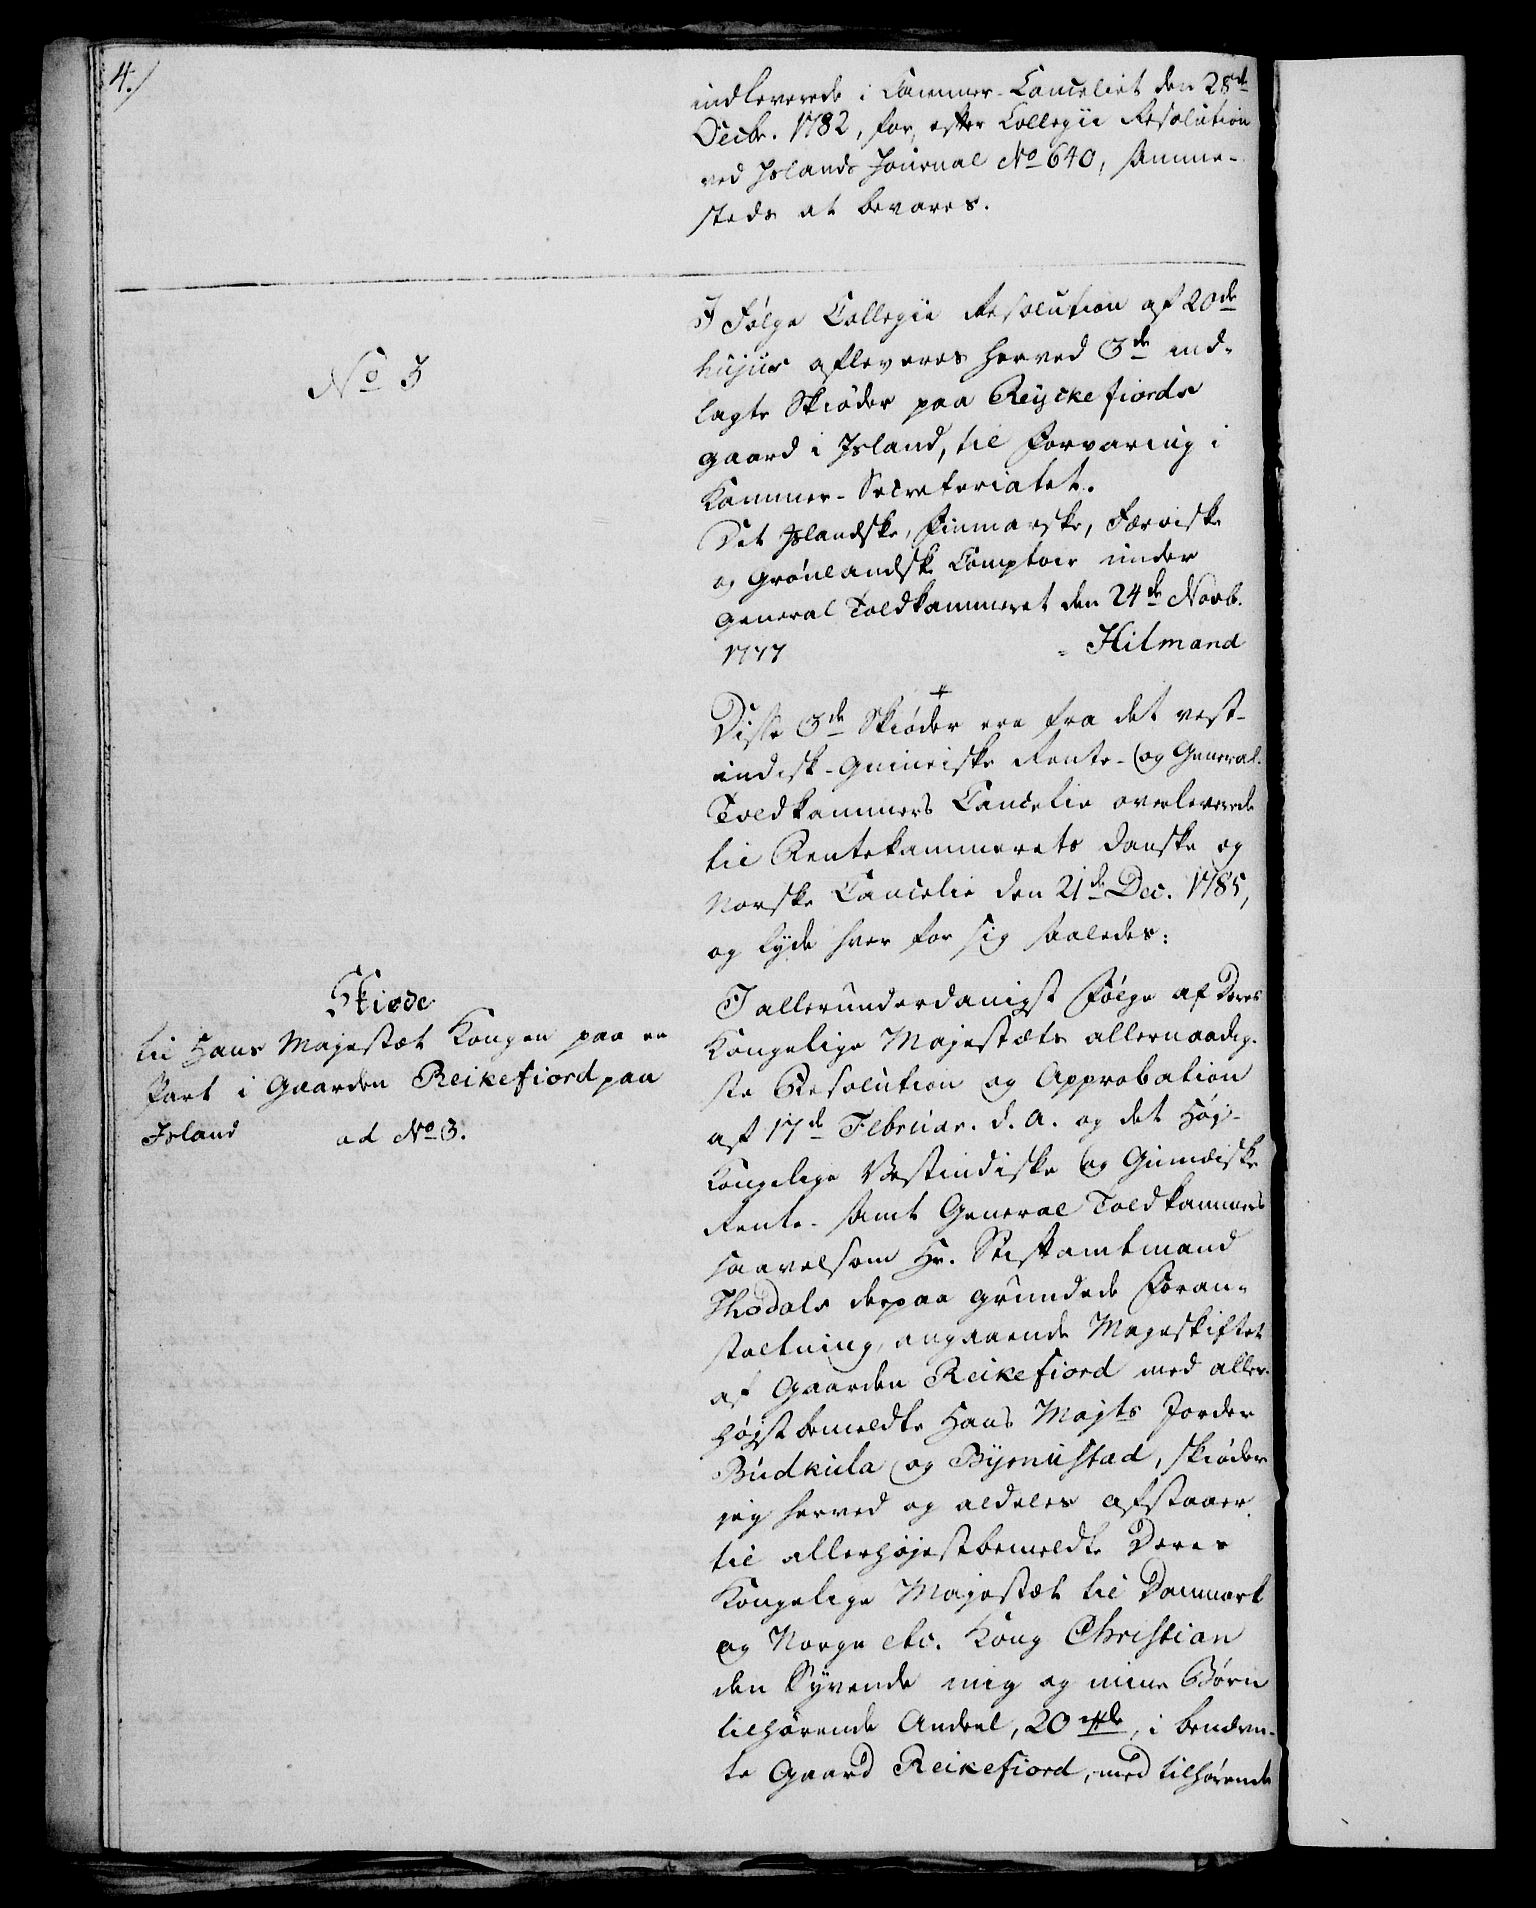 4./
indleverede i Cammer-Canceliet den 28de
Decbr. 1782, for, efter Collegii Resolution
ved Islands Journal No 640, samme-
steds at bevares.
No 3
I Følge Collegii Resolution af 20de
hujus afleveres herved 3de ind-
lagte Skiøder paa Reyckefiords
gaard i Island, til Forvaring i
Kammer-Secreteriatet.
Det Islandske, Finmarske, Færøiske
og Grønlandske Comptoir under
General Toldkammeret den 24de Novb.
1777 Hilmand
Disse 3de Skiøder ere fra det vest-
indisk-guineiske Rente- og General-
Toldkammers Cancelie overleverede
til Rentekammerets danske og
Norske Cancelie den 21de Dec. 1785,
og lyde hver for sig saaledes:
Skiøde
til Hans Majestæt Kongen paa en
Part i Gaarden Reikefiord paa
Island ad No 3.
I allerunderdanigst Følge af Deres
Kongelige Majestæts allernaadig-
ste Resolution og Approbation
af 17de Februar. d. A. og det Høj-
Kongelige Vestindiske og Guinæiske
Rente- samt General Toldkammers
saavelsom Hr. Stiftamtmand
Thodals derpaa grundede Foran-
staltning, angaaende Mageskiftet
af Gaarden Reikefiord med aller-
højstbemeldte Hans Majts Jorder
Budkula og Bjrnustad, skiøder
jeg herved og aldeles afstaaer
til allerhøjestbemeldte Deres
Kongelige Majestæt til Danmark
og Norge etc. Kong Christian
den Syvende mig og mine Børn
tilhørende Andeel, 20 , i benævn-
te Gaard Reikefiord, med tilhørende